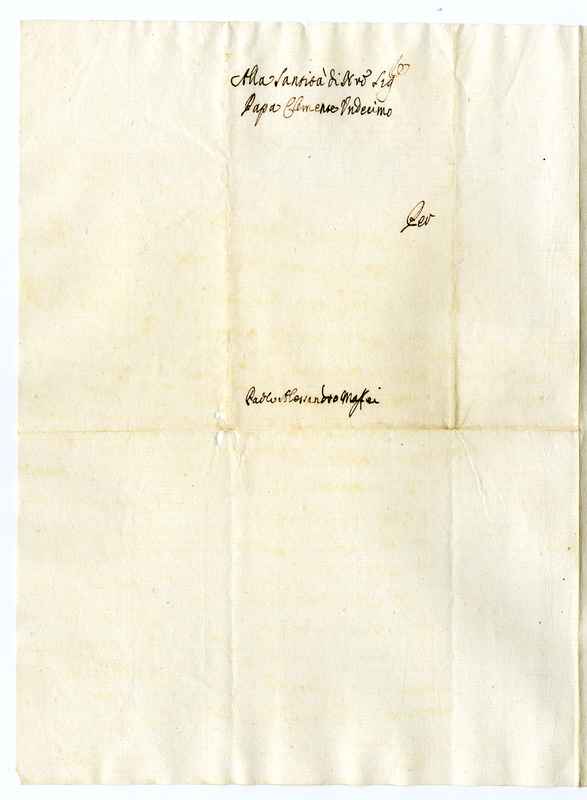 Alla Santità di Nrõ Sigre
Papa Clemente Undecimo
Per
Paolo Alessandro Maffei